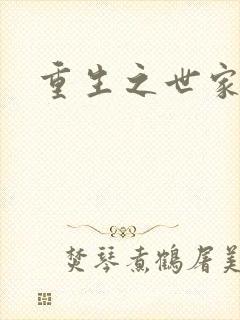 重生之世家
焚琴煮鹤屠美